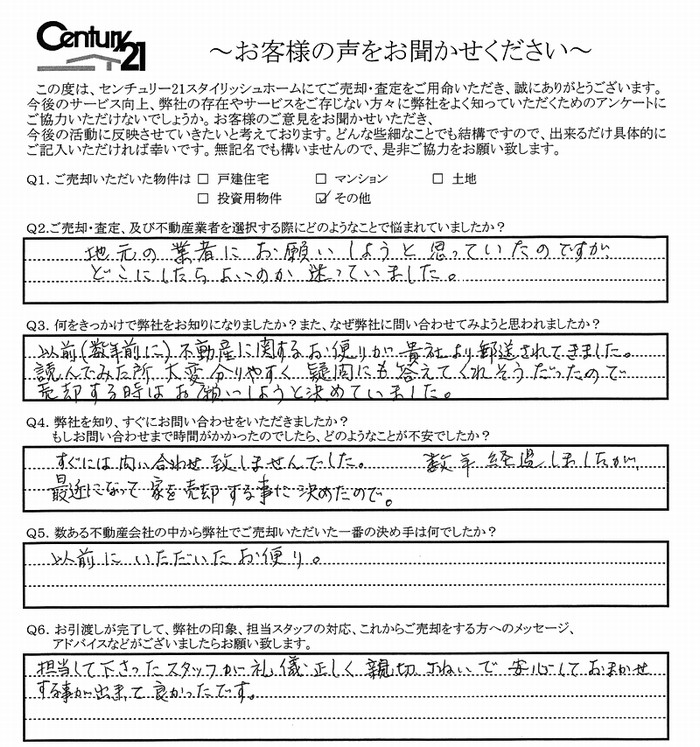 Century 21
～お客様の声をお聞かせください～
この度は、センチュリー21スタイリッシュホームにてご売却・査定をご用命いただき、誠にありがとうございます。
今後のサービス向上、弊社の存在やサービスをご存じない方々に弊社をよく知っていただくためのアンケートに
ご協力いただけないでしょうか。お客様のご意見をお聞かせいただき、
今後の活動に反映させていきたいと考えております。どんな些細なことでも結構ですので、出来るだけ具体的に
ご記入いただければ幸いです。無記名でも構いませんので、是非ご協力をお願い致します。
Q1. ご売却いただいた物件は □ 戸建住宅 □ マンション □ 土地
□ 投資用物件 ☑ その他
Q2.ご売却・査定、及び不動産業者を選択する際にどのようなことで悩まれていましたか?
地元の業者にお願いしようと思っていたのですが、
どこにしたらよいのか迷っていました。
Q3. 何をきっかけで弊社をお知りになりましたか?また、なぜ弊社に問い合わせてみようと思われましたか?
以前(数年前に)不動産に関するお便りが貴社より郵送されてきました。
読んでみた所 大変分りやすく 疑問にも答えてくれそうだったので
売却する時はお願いしようと決めていました。
Q4. 弊社を知り、すぐにお問い合わせをいただきましたか?
もしお問い合わせまで時間がかかったのでしたら、どのようなことが不安でしたか?
すぐには問い合わせ致しませんでした。 数年経過しましたが、
最近になって家を売却する事に決めたので。
Q5. 数ある不動産会社の中から弊社でご売却いただいた一番の決め手は何でしたか?
以前にいただいたお便り。
Q6. お引渡しが完了して、弊社の印象、担当スタッフの対応、これからご売却をする方へのメッセージ、
アドバイスなどがございましたらお願い致します。
担当して下さったスタッフが礼儀正しく親切ていねいで安心しておまかせ
する事が出来て良かったです。